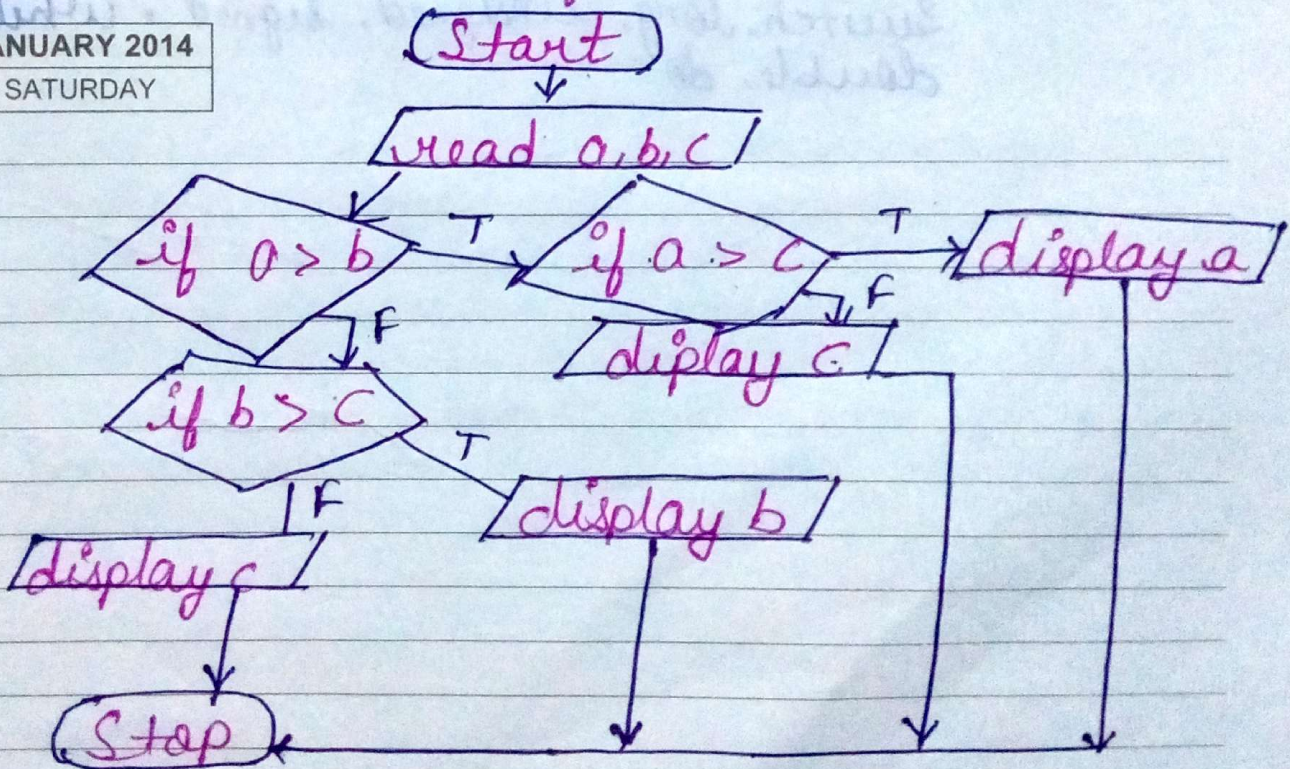 ANUARY 2014
SATURDAY
Start
read a, b, c
if a > b
T
if a > c
T
display a
F
F
diplay c
if b > c
T
F
display b
display c
Stop